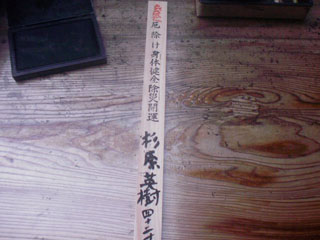 厄除け身体健全除災開運
杉原英樹四十二才